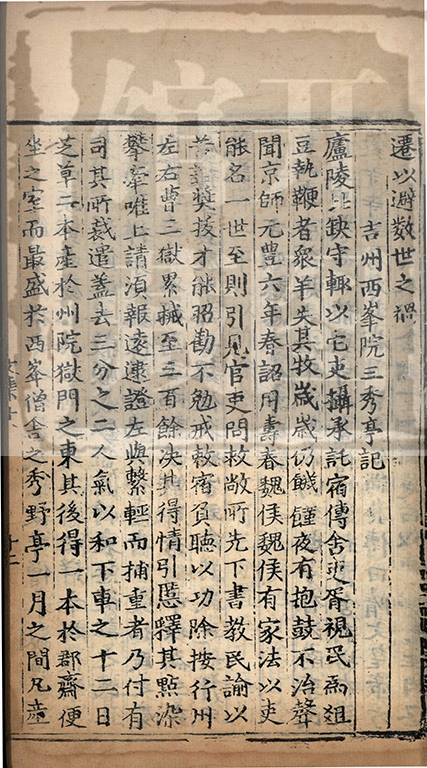 遷以避數世之禍
吉州西峯院三秀亭記
廬陵昆缺守輙以它吏攝承託宿傳舍吏胥視民為俎
豆執鞭者衆羊失其牧歲歲仍饑饉夜有抱鼓不治聲
聞京師元豊六年春詔用壽春魏侯魏侯有家法以吏
能名一世至則引見官吏問救敝所先下書教民諭以
善部奬拔才能昭勸不勉戒敕宿負聽以功除按行州
左右曹三獄累械至三百餘决其得情引慝釋其點染
攀牽唯上請湏報逐逮證左與繫輕而捕重者乃付有
司其所裁遣蓋去三分之二人氣以和下車之十二日
芝草二本產於州院獄門之東其後得一本於郡齋便
坐之室而最盛於西峯僧舍之秀野亭一月之間凡